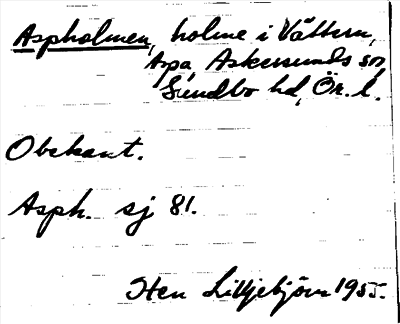 Aspholmen, holme i Vättern,
Aspa Askersunds sn,
Sundbo hd, Ör. l.
Obekant.
Asph. sj 81.
Sten Lilljebjörn 1955.